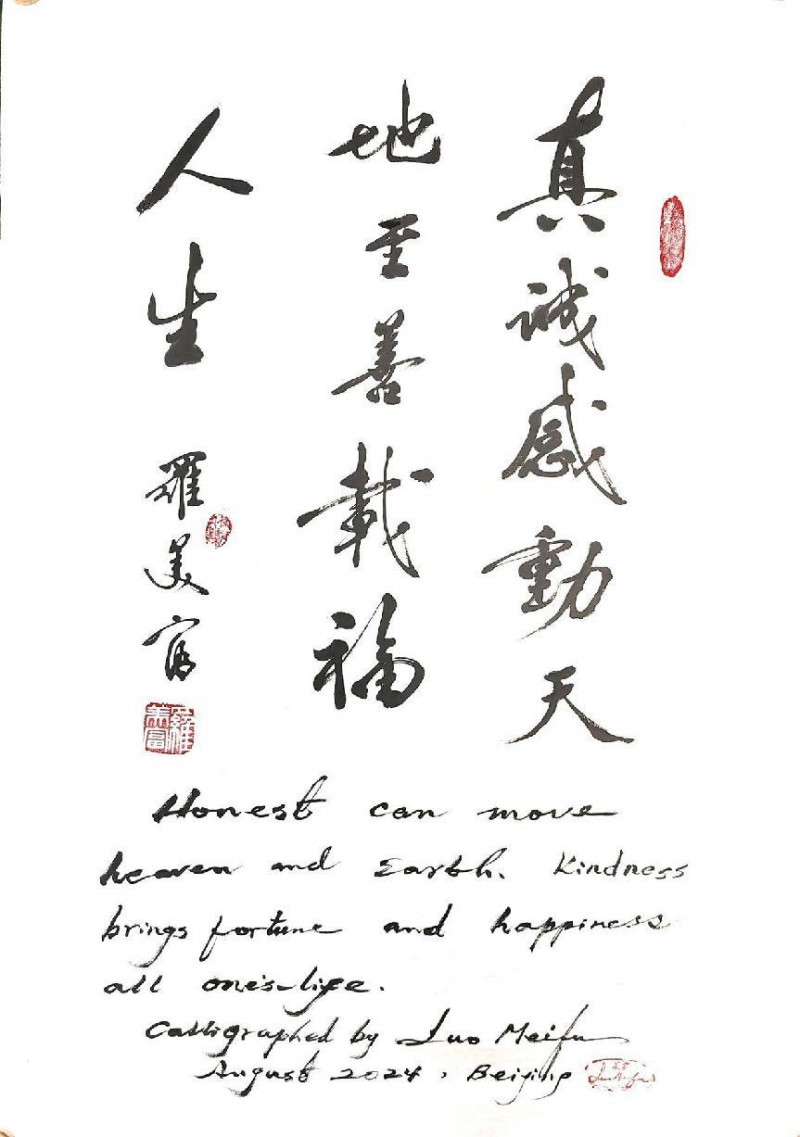 真誠感動天
地至善載福
人生
羅美富
Honest can move
heaven and Earth. Kindness
brings fortune and happiness
all one's-life.
Calligraphed by Luo Meifu
August 2024, Beijing